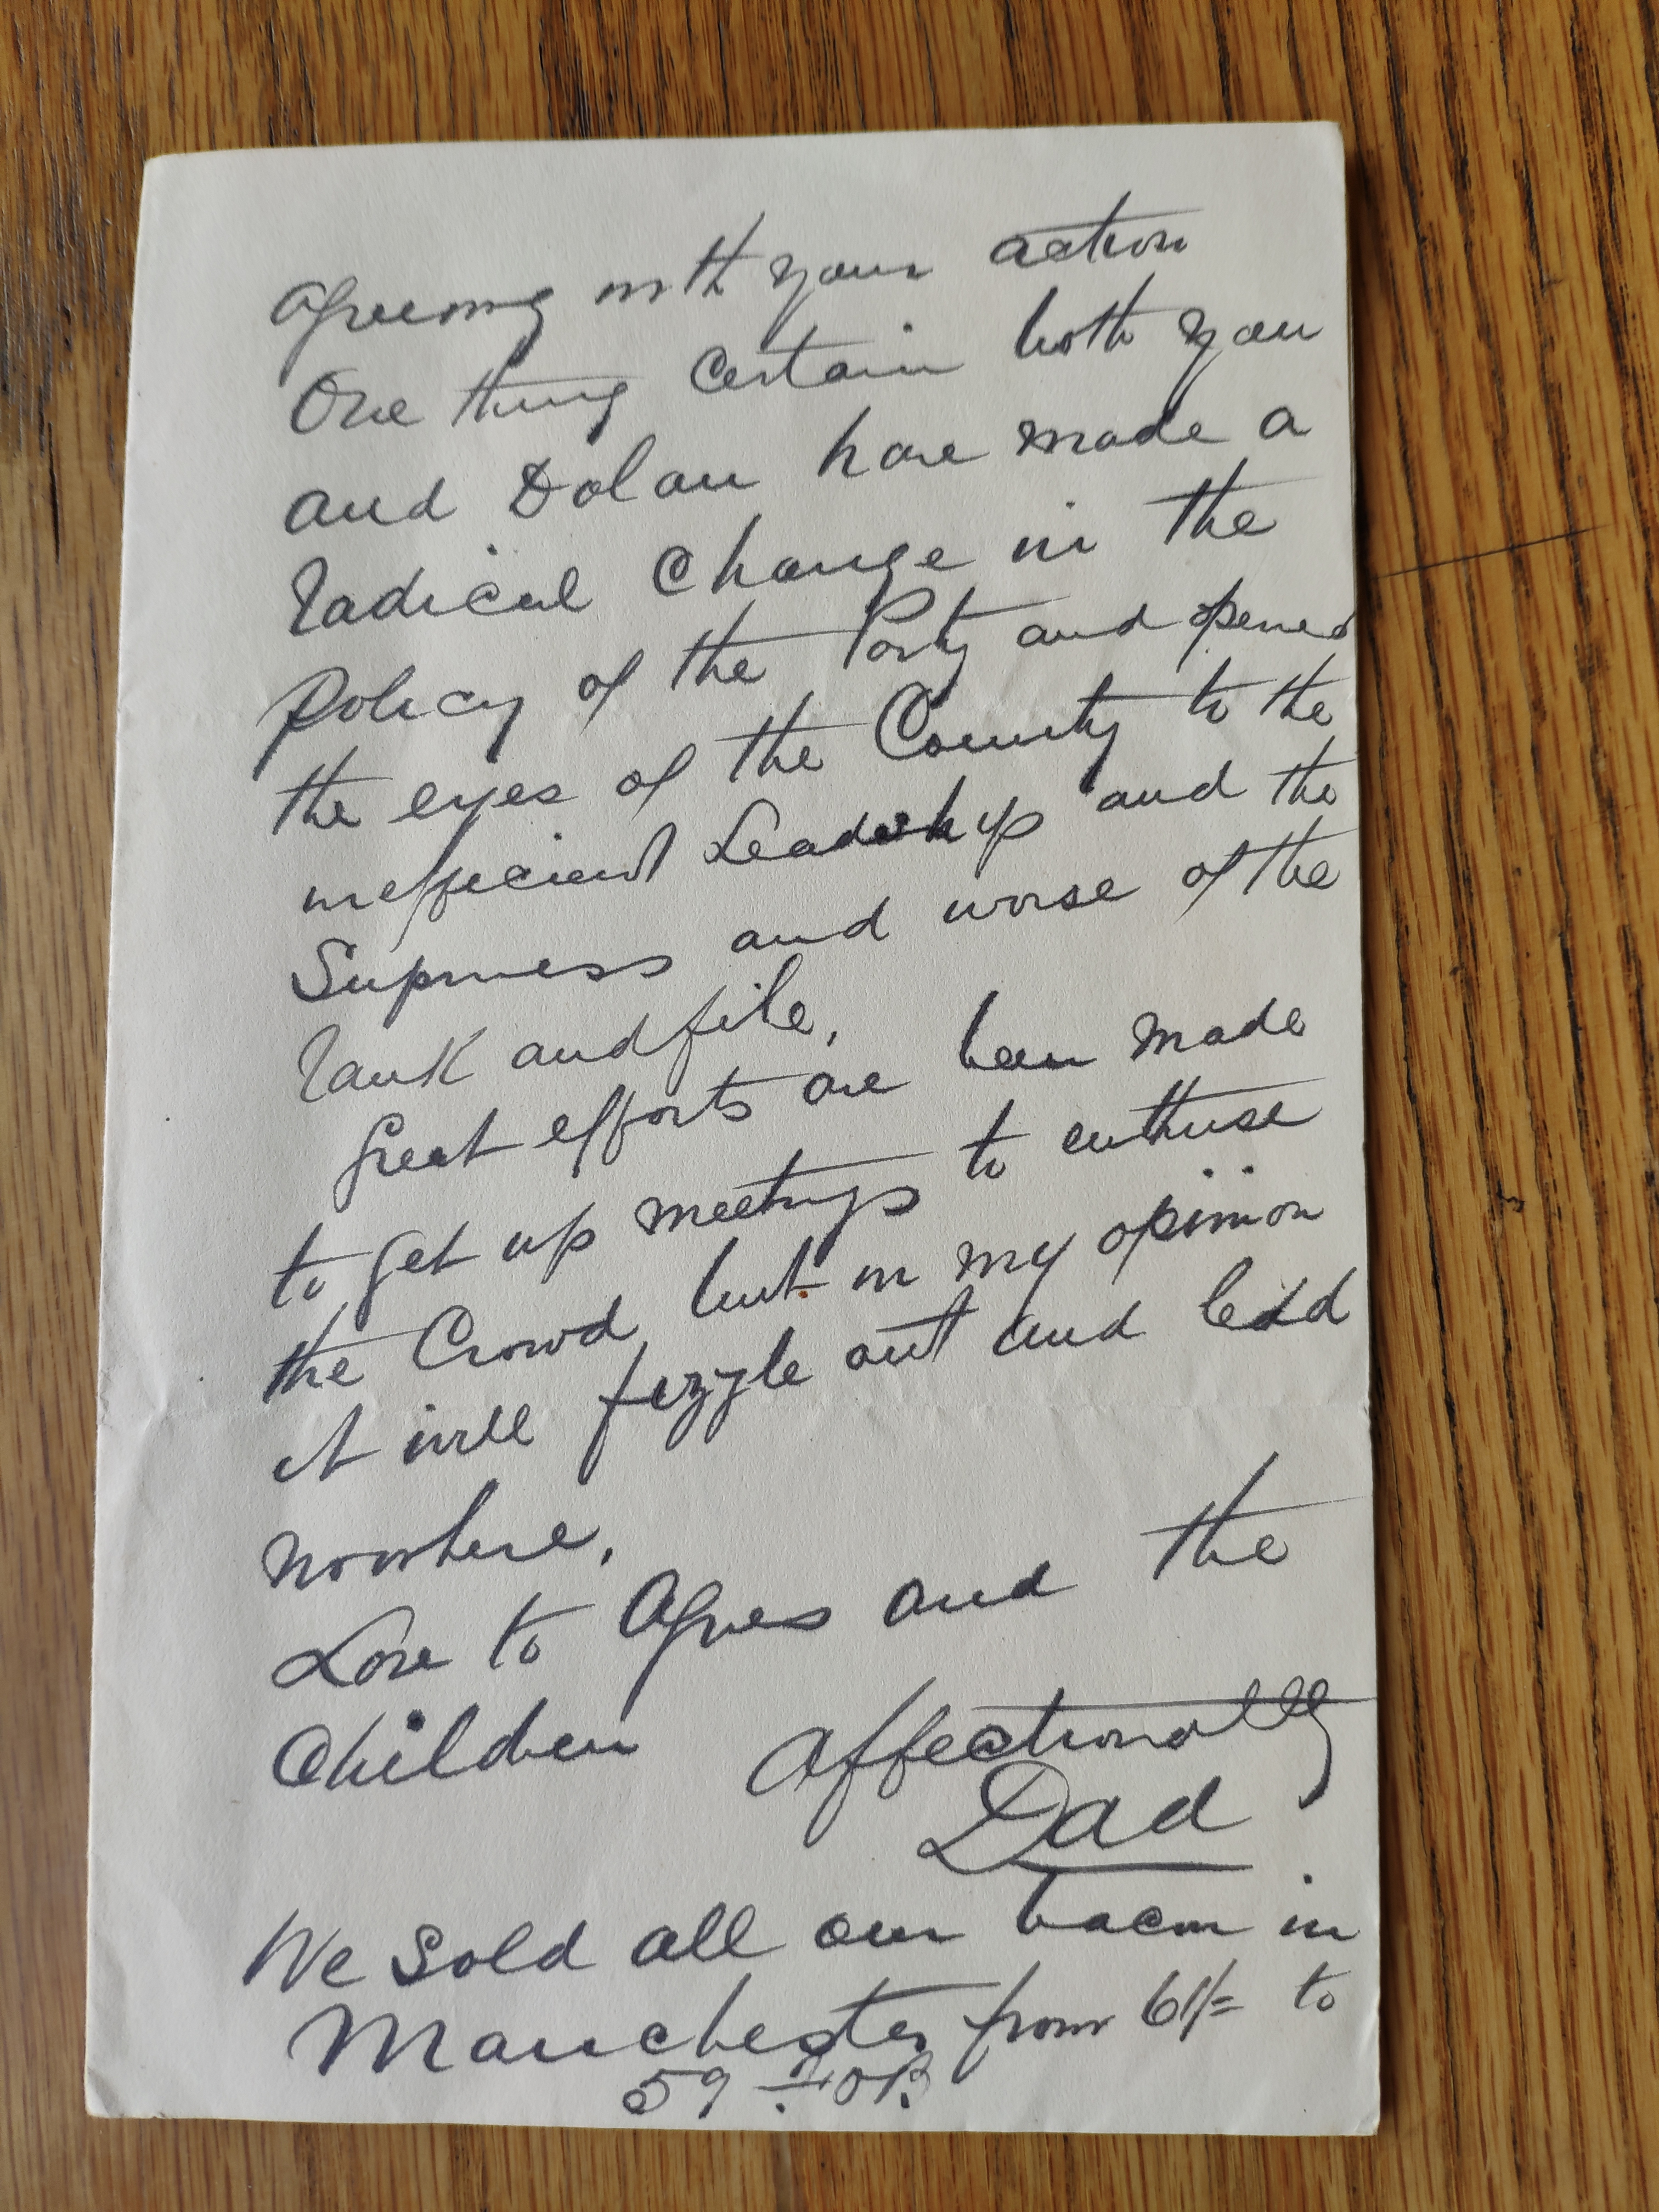 Agreeing with your action
One thing certain both you
and Dolan have made a
radical Change in the
Policy of the Party and opened
the eyes of the Country to the
inefficient Leadership and the
Supiness and worse of the
rank and file.
Great efforts are been made
to get up meetings to enthuse
the Crowd but in my opinion
it will fizzle out and lead
nowhere.
Love to Agnes and the
Children Affectionally
Dad
We Sold all our bacon in
Manchester from 61/= to
59